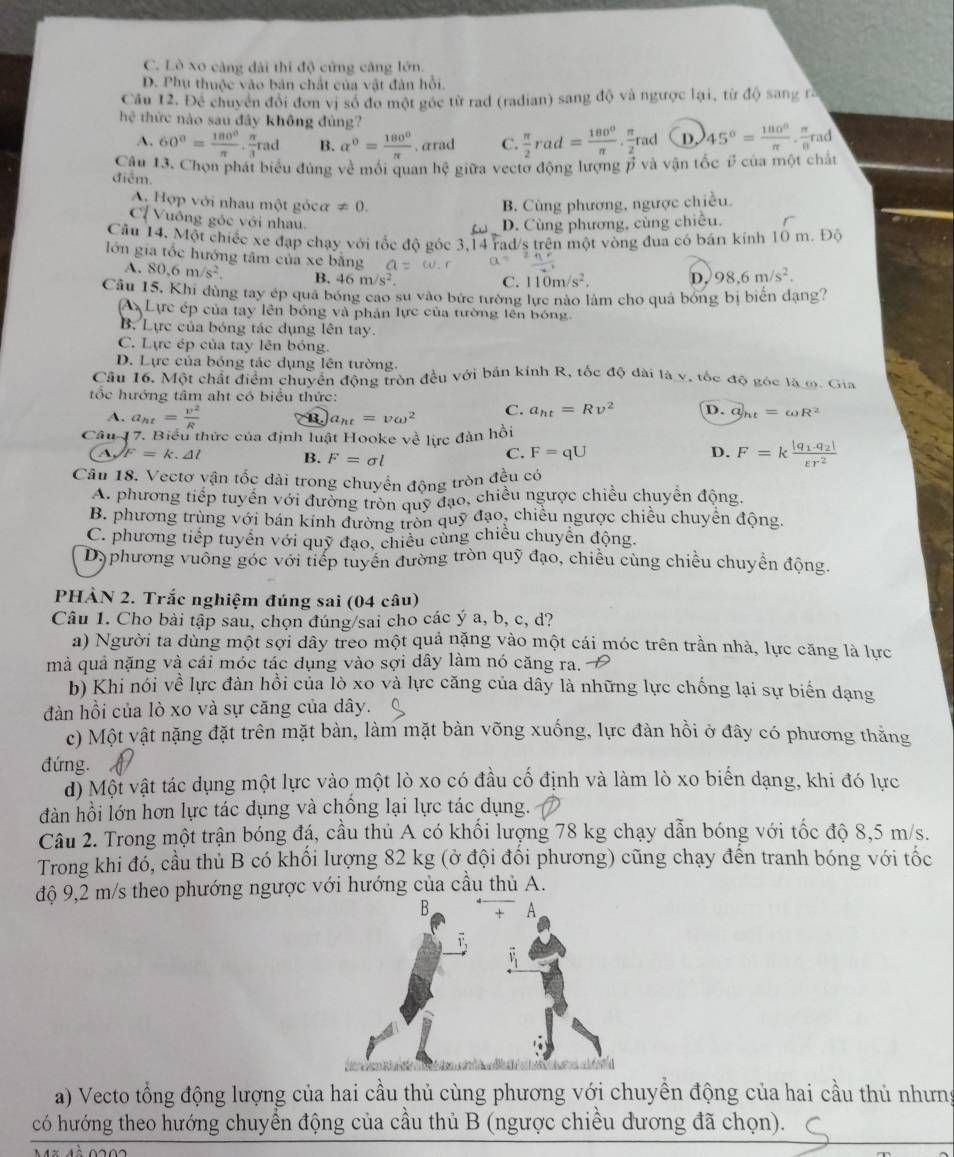 C. Lò xo càng dài thì độ cứng càng lớn.
D. Phụ thuộc vào bản chất của vật đàn hồi.
Câu 12. Để chuyển đổi đơn vị số đo một góc từ rad (radian) sang độ và ngược lại, từ độ sang
hệ thức nào sau đây không đúng?
A. 60⁰ = 180⁰/π . π/3 rad B. a⁰ = 180⁰/π . αrad C. π/2 rad = 180⁰/π . π/2 rad D. 45⁰ = 180⁰/π . π/8 rad
Câu 13. Chọn phát biểu đúng về mối quan hệ giữa vectơ động lượng p⃗ và vận tốc v⃗ của một chất
điểm.
A. Hợp với nhau một góc α ≠ 0. B. Cùng phương, ngược chiều.
C. Vuông góc với nhau. D. Cùng phương, cùng chiều.
Câu 14. Một chiếc xe đạp chạy với tốc độ góc 3,14 rad/s trên một vòng đua có bán kính 10 m. Độ
lớn gia tốc hướng tâm của xe bằng a = ω.r
A. 80,6 m/s². B. 46 m/s². C. 110m/s². D. 98,6 m/s².
Câu 15. Khi dùng tay ép quả bóng cao su vào bức tường lực nào làm cho quả bóng bị biến dạng?
A. Lực ép của tay lên bóng và phản lực của tường lên bóng.
B. Lực của bóng tác dụng lên tay.
C. Lực ép của tay lên bóng.
D. Lực của bóng tác dụng lên tường.
Câu 16. Một chất điểm chuyển động tròn đều với bán kính R, tốc độ dài là v, tốc độ góc là ω. Gia
tốc hướng tâm aht có biểu thức:
A. aₕₜ = v²/R B. aₕₜ = vω² C. aₕₜ = Rv² D. aₕₜ = ωR²
Câu 17. Biểu thức của định luật Hooke về lực đàn hồi
A. F = k.Δl B. F = σl C. F = qU D. F = k |q₁.q₂|/εr²
Câu 18. Vectơ vận tốc dài trong chuyển động tròn đều có
A. phương tiếp tuyến với đường tròn quỹ đạo, chiều ngược chiều chuyển động.
B. phương trùng với bán kính đường tròn quỹ đạo, chiều ngược chiều chuyển động.
C. phương tiếp tuyến với quỹ đạo, chiều cùng chiều chuyển động.
D. phương vuông góc với tiếp tuyến đường tròn quỹ đạo, chiều cùng chiều chuyển động.
PHẦN 2. Trắc nghiệm đúng sai (04 câu)
Câu 1. Cho bài tập sau, chọn đúng/sai cho các ý a, b, c, d?
a) Người ta dùng một sợi dây treo một quả nặng vào một cái móc trên trần nhà, lực căng là lực
mà quả nặng và cái móc tác dụng vào sợi dây làm nó căng ra. Đ
b) Khi nói về lực đàn hồi của lò xo và lực căng của dây là những lực chống lại sự biến dạng
đàn hồi của lò xo và sự căng của dây. S
c) Một vật nặng đặt trên mặt bàn, làm mặt bàn võng xuống, lực đàn hồi ở đây có phương thẳng
đứng. Đ
d) Một vật tác dụng một lực vào một lò xo có đầu cố định và làm lò xo biến dạng, khi đó lực
đàn hồi lớn hơn lực tác dụng và chống lại lực tác dụng. Đ
Câu 2. Trong một trận bóng đá, cầu thủ A có khối lượng 78 kg chạy dẫn bóng với tốc độ 8,5 m/s.
Trong khi đó, cầu thủ B có khối lượng 82 kg (ở đội đối phương) cũng chạy đến tranh bóng với tốc
độ 9,2 m/s theo phướng ngược với hướng của cầu thủ A.
B + A
v⃗₂
v⃗₁
a) Vecto tổng động lượng của hai cầu thủ cùng phương với chuyển động của hai cầu thủ nhưng
có hướng theo hướng chuyển động của cầu thủ B (ngược chiều dương đã chọn). S
Mã đề 0202